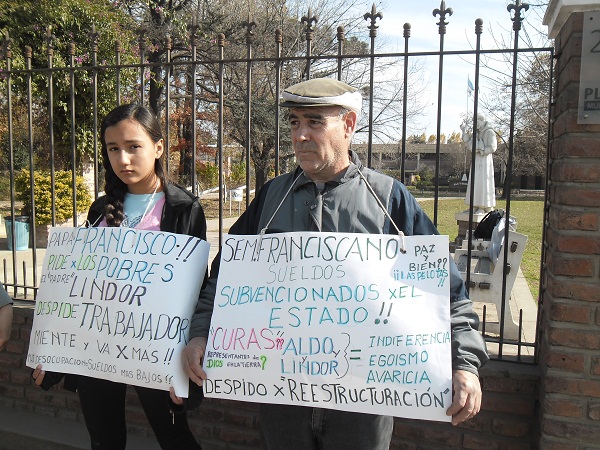 PAPA FRANCISCO !!
PIDE X LOS POBRES
EL "PADRE" LINDOR
DESPIDE TRABAJADOR
MIENTE y VA X MAS !!
DESOCUPACIÓN = SUELDOS MAS BAJOS !!
SEM. FRANCISCANO
SUELDOS
SUBVENCIONADOS X EL
ESTADO !!
PAZ Y
BIEN??
¡¡LAS PELOTAS !!
"CURAS"
REPRESENTANTES DE
DIOS EN LA TIERRA?
ALDO y
LINDOR
=
INDIFERENCIA
EGOISMO
AVARICIA
DESPIDO X "REESTRUCTURACIÓN"